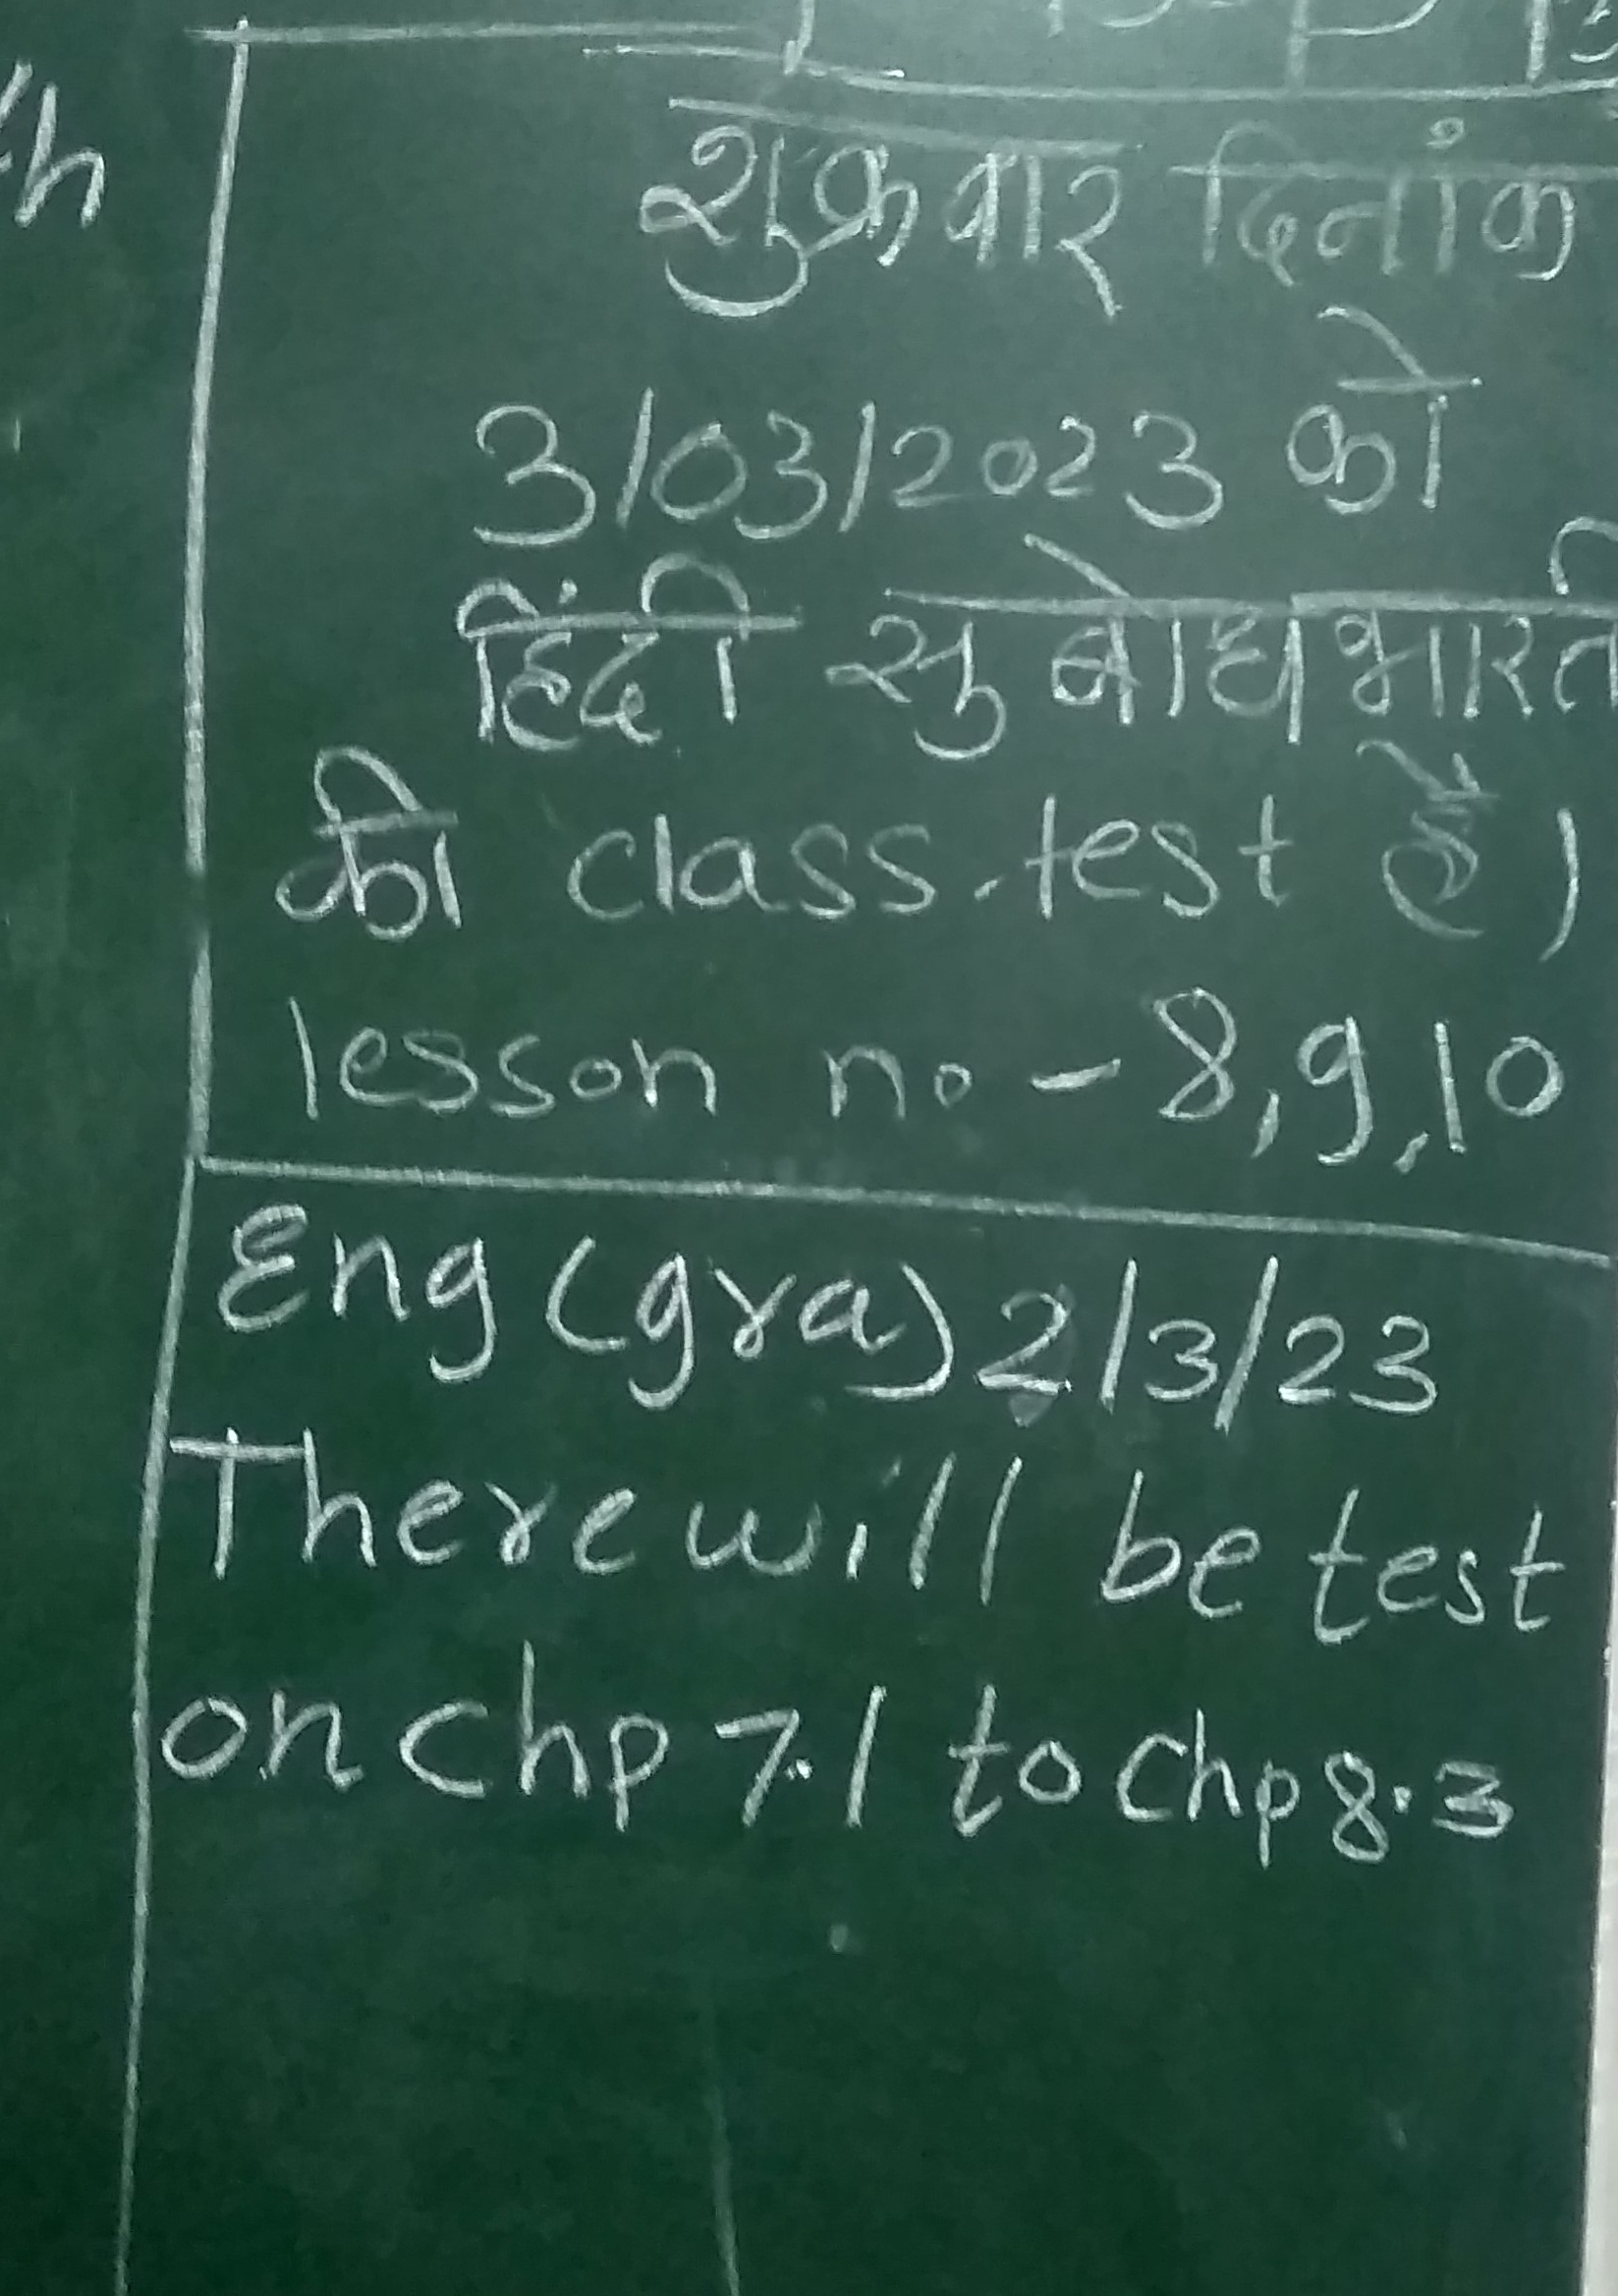 शुक्रवार दिनांक
3/03/2023 को
हिंदी सुबोधभारती
की class test है।
lesson no - 8, 9, 10
Eng (gra) 2/3/23
There will be test
on Chp 7.1 to Chp 8.3